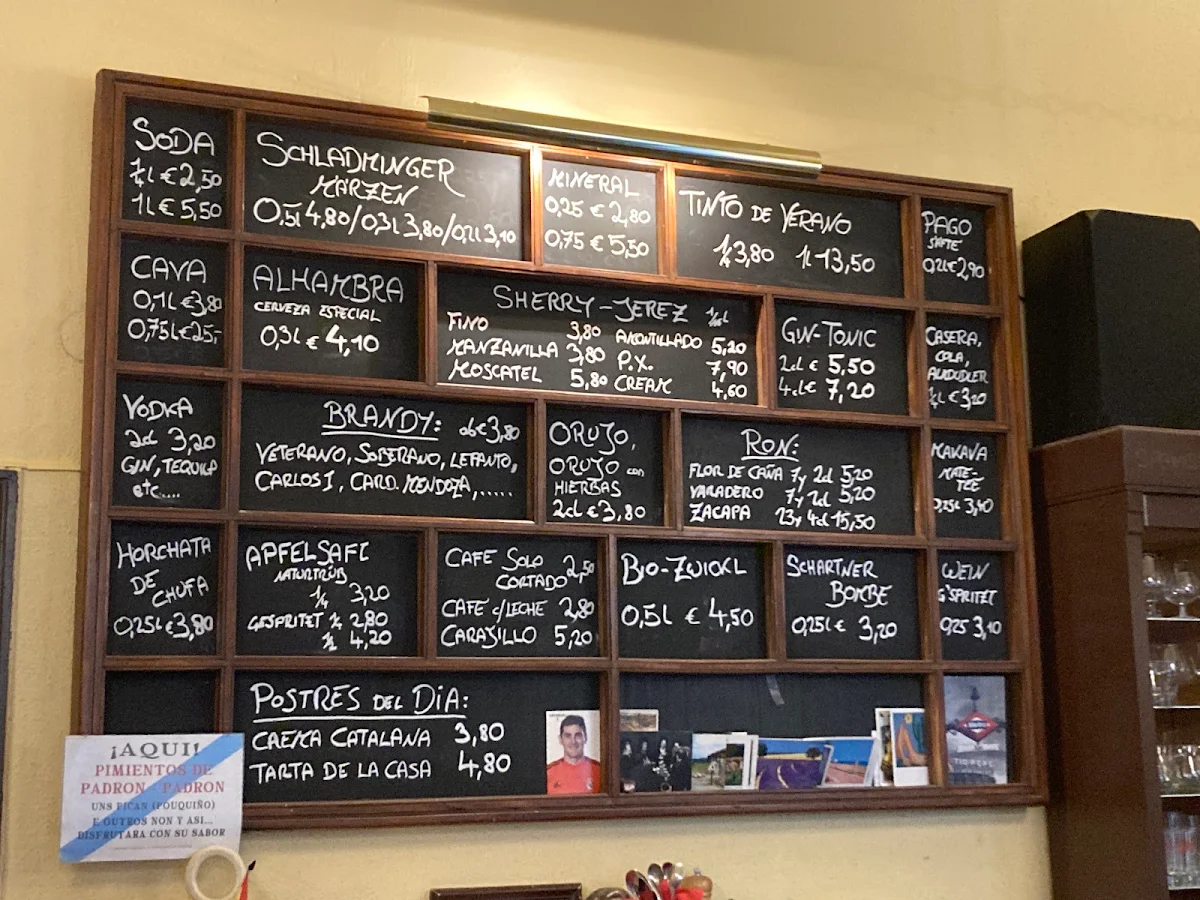 SODA
¼l € 2,50
1l € 5,50
SCHLADMINGER
MÄRZEN
0,5l 4,80/0,3l 3,80/0,2l 3,10
MINERAL
0,25 € 2,80
0,75 € 5,50
TINTO DE VERANO
¼ 3,80 1l 13,50
PAGO
SÄFTE
0,2l € 2,90
CAVA
0,1l € 3,80
0,75l € 25,-
ALHAMBRA
CERVEZA ESPECIAL
0,3l € 4,10
SHERRY-JEREZ 1/16l
FINO 3,80 AMONTILLADO 5,20
MANZANILLA 3,80 P.X. 7,90
MOSCATEL 5,80 CREAM 4,60
GIN-TONIC
2cl € 5,50
4cl € 7,20
CASERA,
COLA,
ALMDUDLER
¼l € 3,20
VODKA
2cl 3,20
GIN, TEQUILA
etc....
BRANDY: ab € 3,80
VETERANO, SOBERANO, LEPANTO,
CARLOS I, CARD. MENDOZA,.....
ORUJO,
ORUJO con
HIERBAS
2cl € 3,80
RON:
FLOR DE CAÑA 7y 2cl 5,20
VARADERO 7y 2cl 5,20
ZACAPA 23y 4cl 15,50
MAKAVA
MATE-
TEE
0,25l 3,40
HORCHATA
DE
CHUFA
0,25l € 3,80
APFELSAFT
NATURTRÜB
¼ 3,20
GESPRITZT ¼ 2,80
½ 4,20
CAFE SOLO 2,50
CORTADO
CAFE c/LECHE 2,80
CARAJILLO 5,20
BIO-ZWICKL
0,5l € 4,50
SCHARTNER
BOMBE
0,25l € 3,20
WEIN
G'SPRITZT
0,25 3,10
POSTRES DEL DIA:
CREMA CATALANA 3,80
TARTA DE LA CASA 4,80
¡AQUI!
PIMIENTOS DE
PADRON - PADRON
UNS PICAN (POUQUIÑO)
E OUTROS NON Y ASI...
DISFRUTARA CON SU SABOR